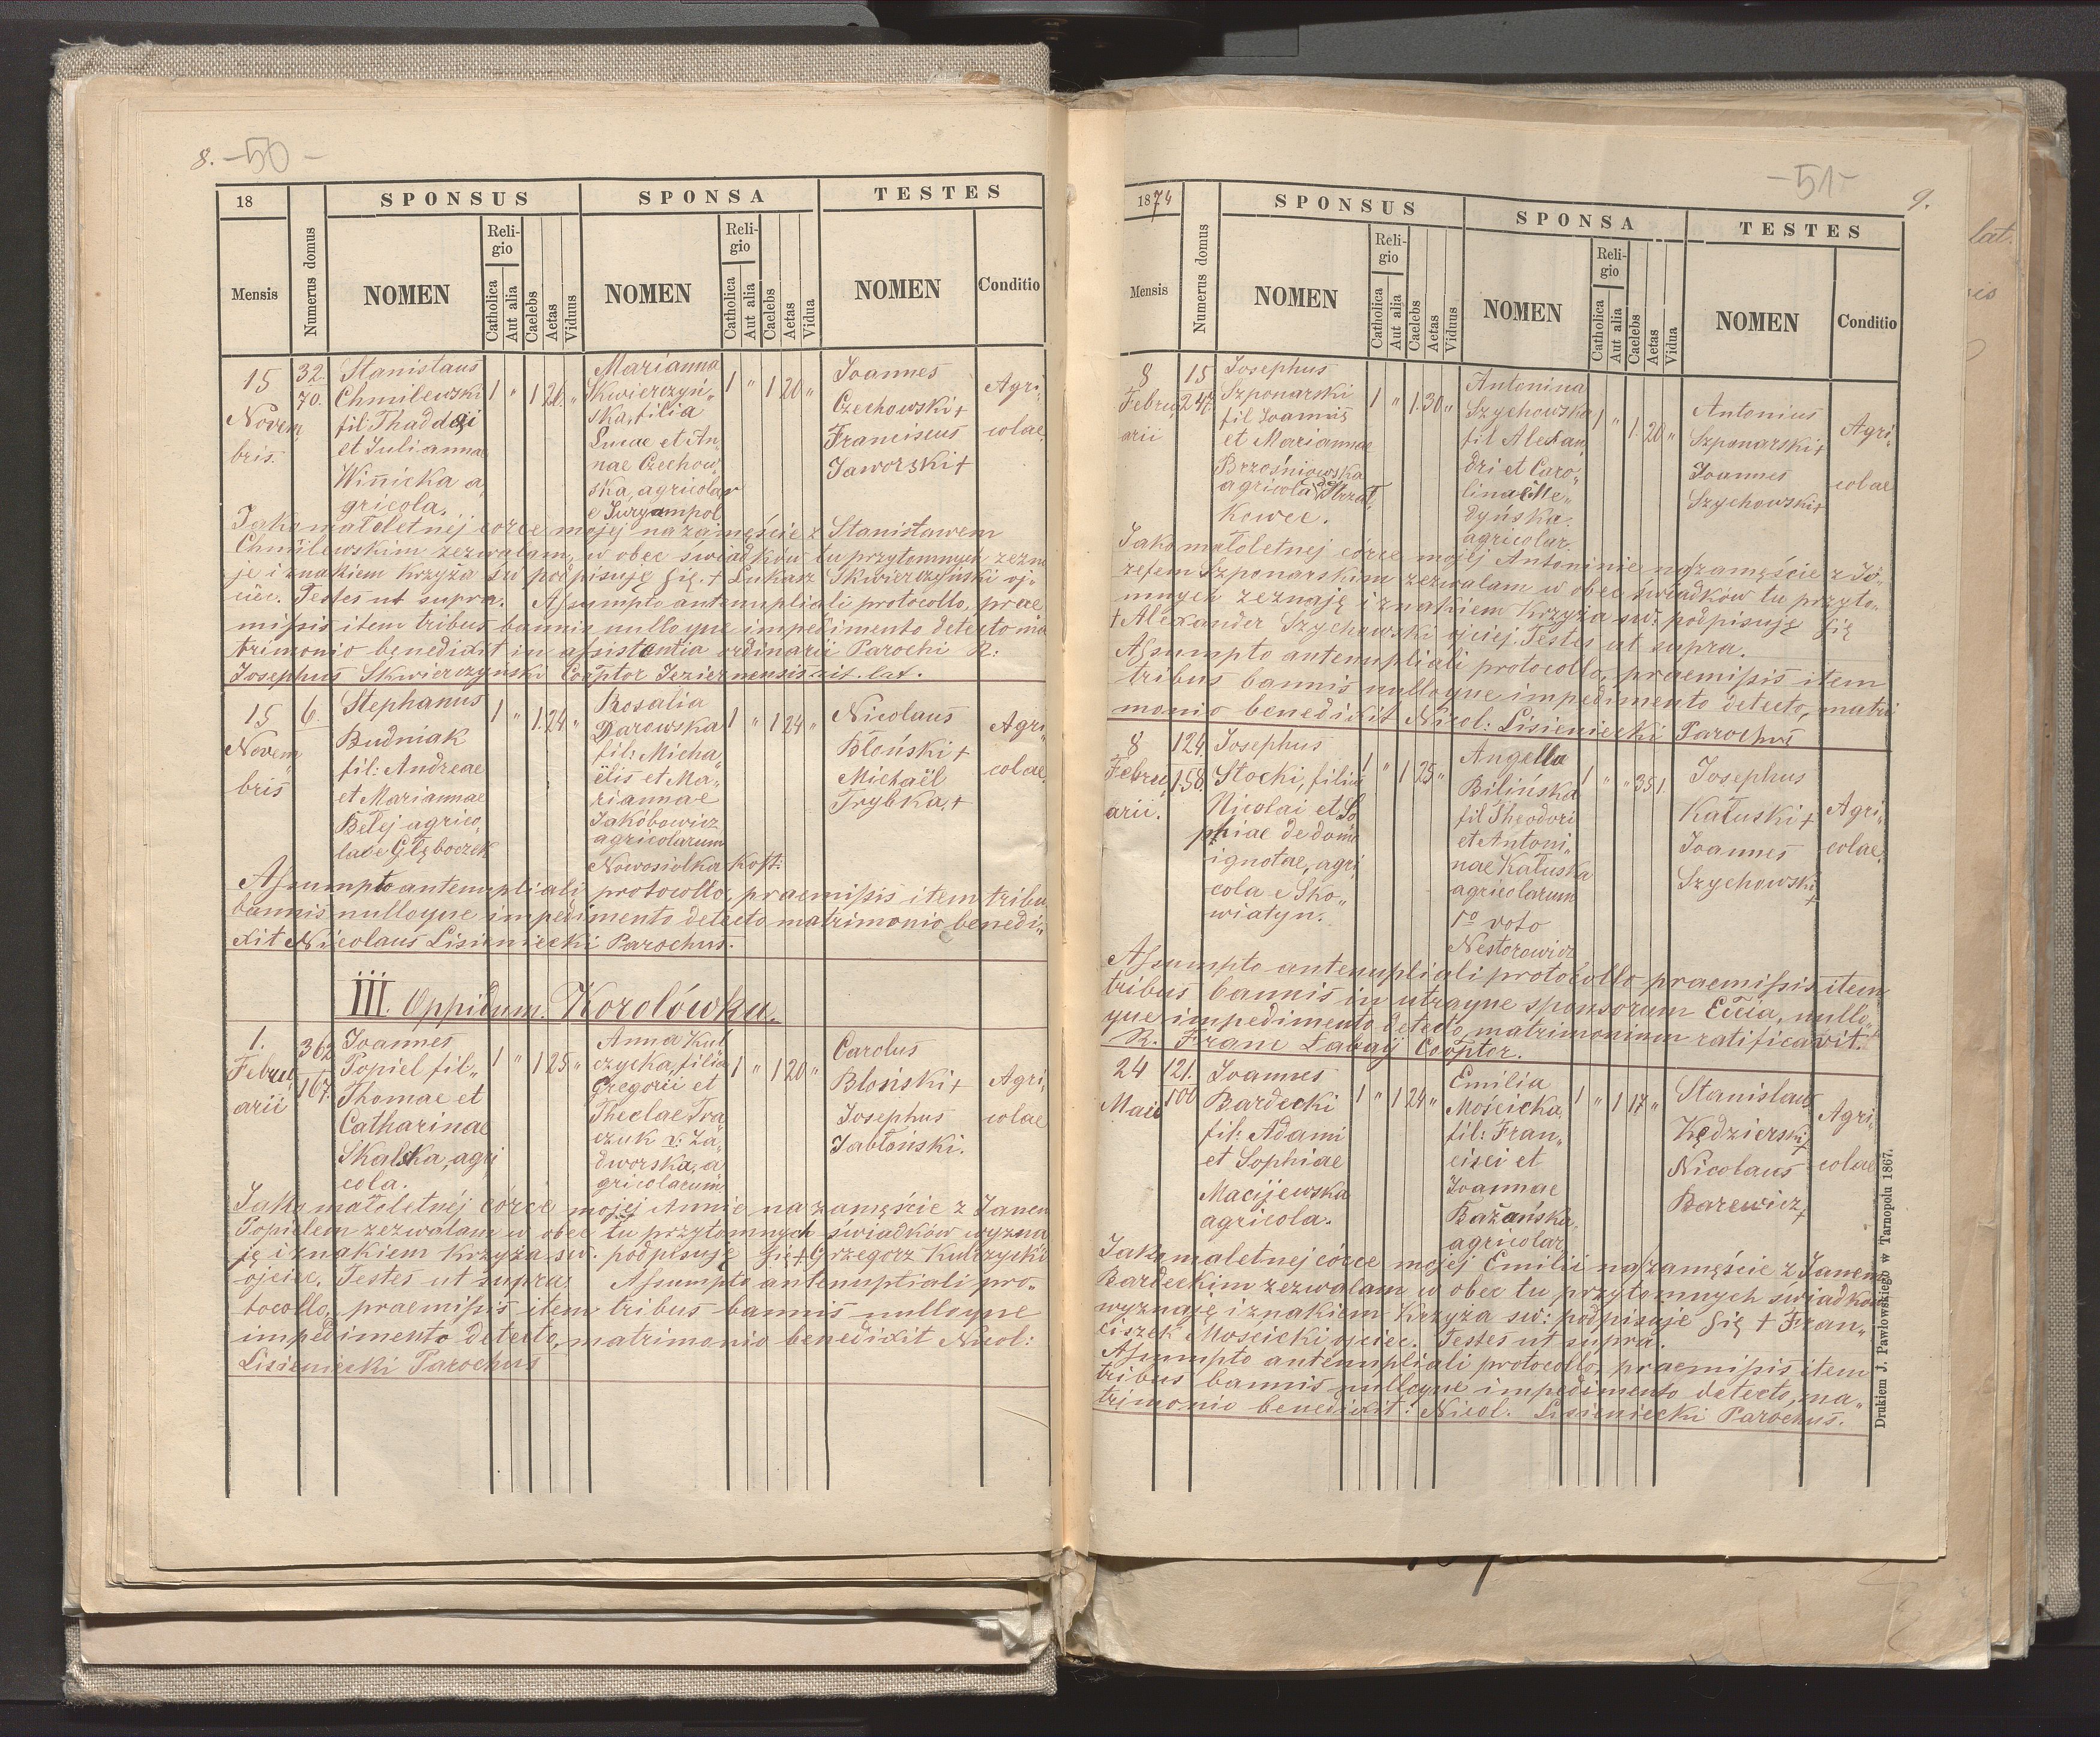 8. -50-
18
SPONSUS
SPONSA
TESTES
Mensis
Numerus domus
NOMEN
Religio
Catholica
Aut alia
Caelebs
Aetas
Viduus
NOMEN
Religio
Catholica
Aut alia
Caelebs
Aetas
Vidua
NOMEN
Conditio
15
Novem„
bris.
32.
70.
Stanislaus
Chmilewski
fil Thaddaei
et Julianna
Winnicka a„
gricola.
1 " 1 26. "
Marianna
Skwierczyń„
ska, filia
Lucae et An„
nae Czechow„
ska, agricolar
e Juryampol
1 " 1 20 "
Joannes
Czechowski +
Franciscus
Jaworski +
Agri„
colae.
Jako małoletnéj córce mojej na zamęście z Stanisławem
Chmilewskim zezwalam, w obec świadków tu przytomnych zezna
je i znakiem krzyża św podpisuję się. + Łukasz Skwierczyński oj„
ciec. Testes ut supra. Assumpto antenupliali protocollo, prae
missis item tribus bannis nulloque impedimento detecto ma
trimonio benedixit in assistentia ordinarii Parochi R:
Josephus Skwierczyński Cooptor Jeziernensis rit. lat.
15
Novem
bris
6.
Stephanus
Budniak
fil: Andreae
et Mariannae
Bełej agrico„
lae e Głęboczek
1 " 1. 24. "
Rosalia
Darowska
fil: Micha„
ëlis et Ma„
riannae
Jakóbowicz
agricolarum
Nowosiolka Kost:
1 " 1 24 "
Nicolaus
Błoński +
Michaël
Trybka. +
Agri„
colae.
Assumpto antenupliali protocollo, praemissis item tribu
bannis nulloque impedimento detecto matrimonio benedi„
xit Nicolaus Lisieniecki Parochus.
III. Oppidum. Korolówka.
1.
Febru„
arii
362
167.
Joannes
Popiel fil„
Thomae et
Catharinae
Skalska, agri
cola.
1 " 1 25 "
Anna Kul
czycka, filia
Gregorii et
Theclae Tra
czuk v: Za„
dworska, a
gricolarum
1 " 1 20 "
Carolus
Błoński +
Josephus
Jabłoński.
Agri„
colae
Jako małoletnéj córce mojéj Annie na zamęście z Janem
Popielem zezwalam w obec tu przytomnych świadków wyzna
ję i znakiem krzyża sw. podpisuję się + Grzegorz Kulczycki
ojciec. Testes ut supra. Assumpto antenuptiali pro„
tocollo, praemissis item tribus bannis nulloque
impedimento detecto, matrimonio benedixit Nicol:
Lisieniecki Parochus
-51- 9.
1874
SPONSUS
SPONSA
TESTES
Mensis
Numerus domus
NOMEN
Religio
Catholica
Aut alia
Caelebs
Aetas
Viduus
NOMEN
Religio
Catholica
Aut alia
Caelebs
Aetas
Vidua
NOMEN
Conditio
8
Febru„
arii
15
247.
Josephus
Szponarski
fil Joannis
et Mariannae
Brzośniowska
agricola de
kowec.
1 " 1. 30 "
Antonina
Szychowska
fil Alexan„
dri et Caro„
linae Me„
dyńska.
agricolar.
1 " 1. 20 "
Antonius
Szponarski +
Joannes
Szychowski +
Agri„
colae
Jako małoletnej córce mojéj Antoninie na zamęście z Jó„
zefem Szponarskim zezwalam w obec świadków tu przyto„
mnych zeznaję i znakiem krzyża sw: podpisuję się
+ Alexander Szychowski ojciej. Testes ut supra.
Assumpto antenupliali protocollo, praemissis item
tribus bannis nulloque impedimento detecto, matri
monio benedixit Nicol: Lisieniecki Parochus
8
Febru„
arii.
124
158.
Josephus
Stocki, filia
Nicolai et So
phiae de domo
ignotae, agri
cola e Sko„
wiatyn.
1 " 1 25 "
Angella
Bilińska
fil Theodori
et Antoni„
nae Kałuska
agricolarum
1o voto
Nestorowicz
1 " " 35 1.
Josephus
Kałuski +
Joannes
Szychowski
+
Agri„
colae.
Assumpto antenupliali protocollo praemissis item
tribus bannis in utraque sponsorum Ecclia, nullo„
que impedimento detecto, matrimonium ratificavit.
R. Franc Łabaÿ Cooptor.
24
Maii
121.
100
Joannes
Bardecki
fil: Adami
et Sophiae
Macijewska
agricola.
1 " 1 24 "
Emilia
Mościcka,
fil: Fran„
cisci et
Joannae
Bażańska.
agricolar
1 " 1 17 "
Stanislaus
Kędzierski +
Nicolaus
Barewicz +
Agri„
colae
Jako maletnej córce mojéj Emilii na zamęście z Janem
Bardeckim zezwalam w obec tu przytomnych swiadków
wyznaję i znakiem krzyża sw: podpisuje się + Fran„
ciszek Moscicki ojciec. Testes ut supra.
Assumpto antenupliali protocollo, praemissis item
tribus bannis nulloque impedimento detecto, ma„
trimonio benedixit: Nicol. Lisieniecki Parochus.
Drukiem J. Pawłowskiego w Tarnopolu 1867.
lat.